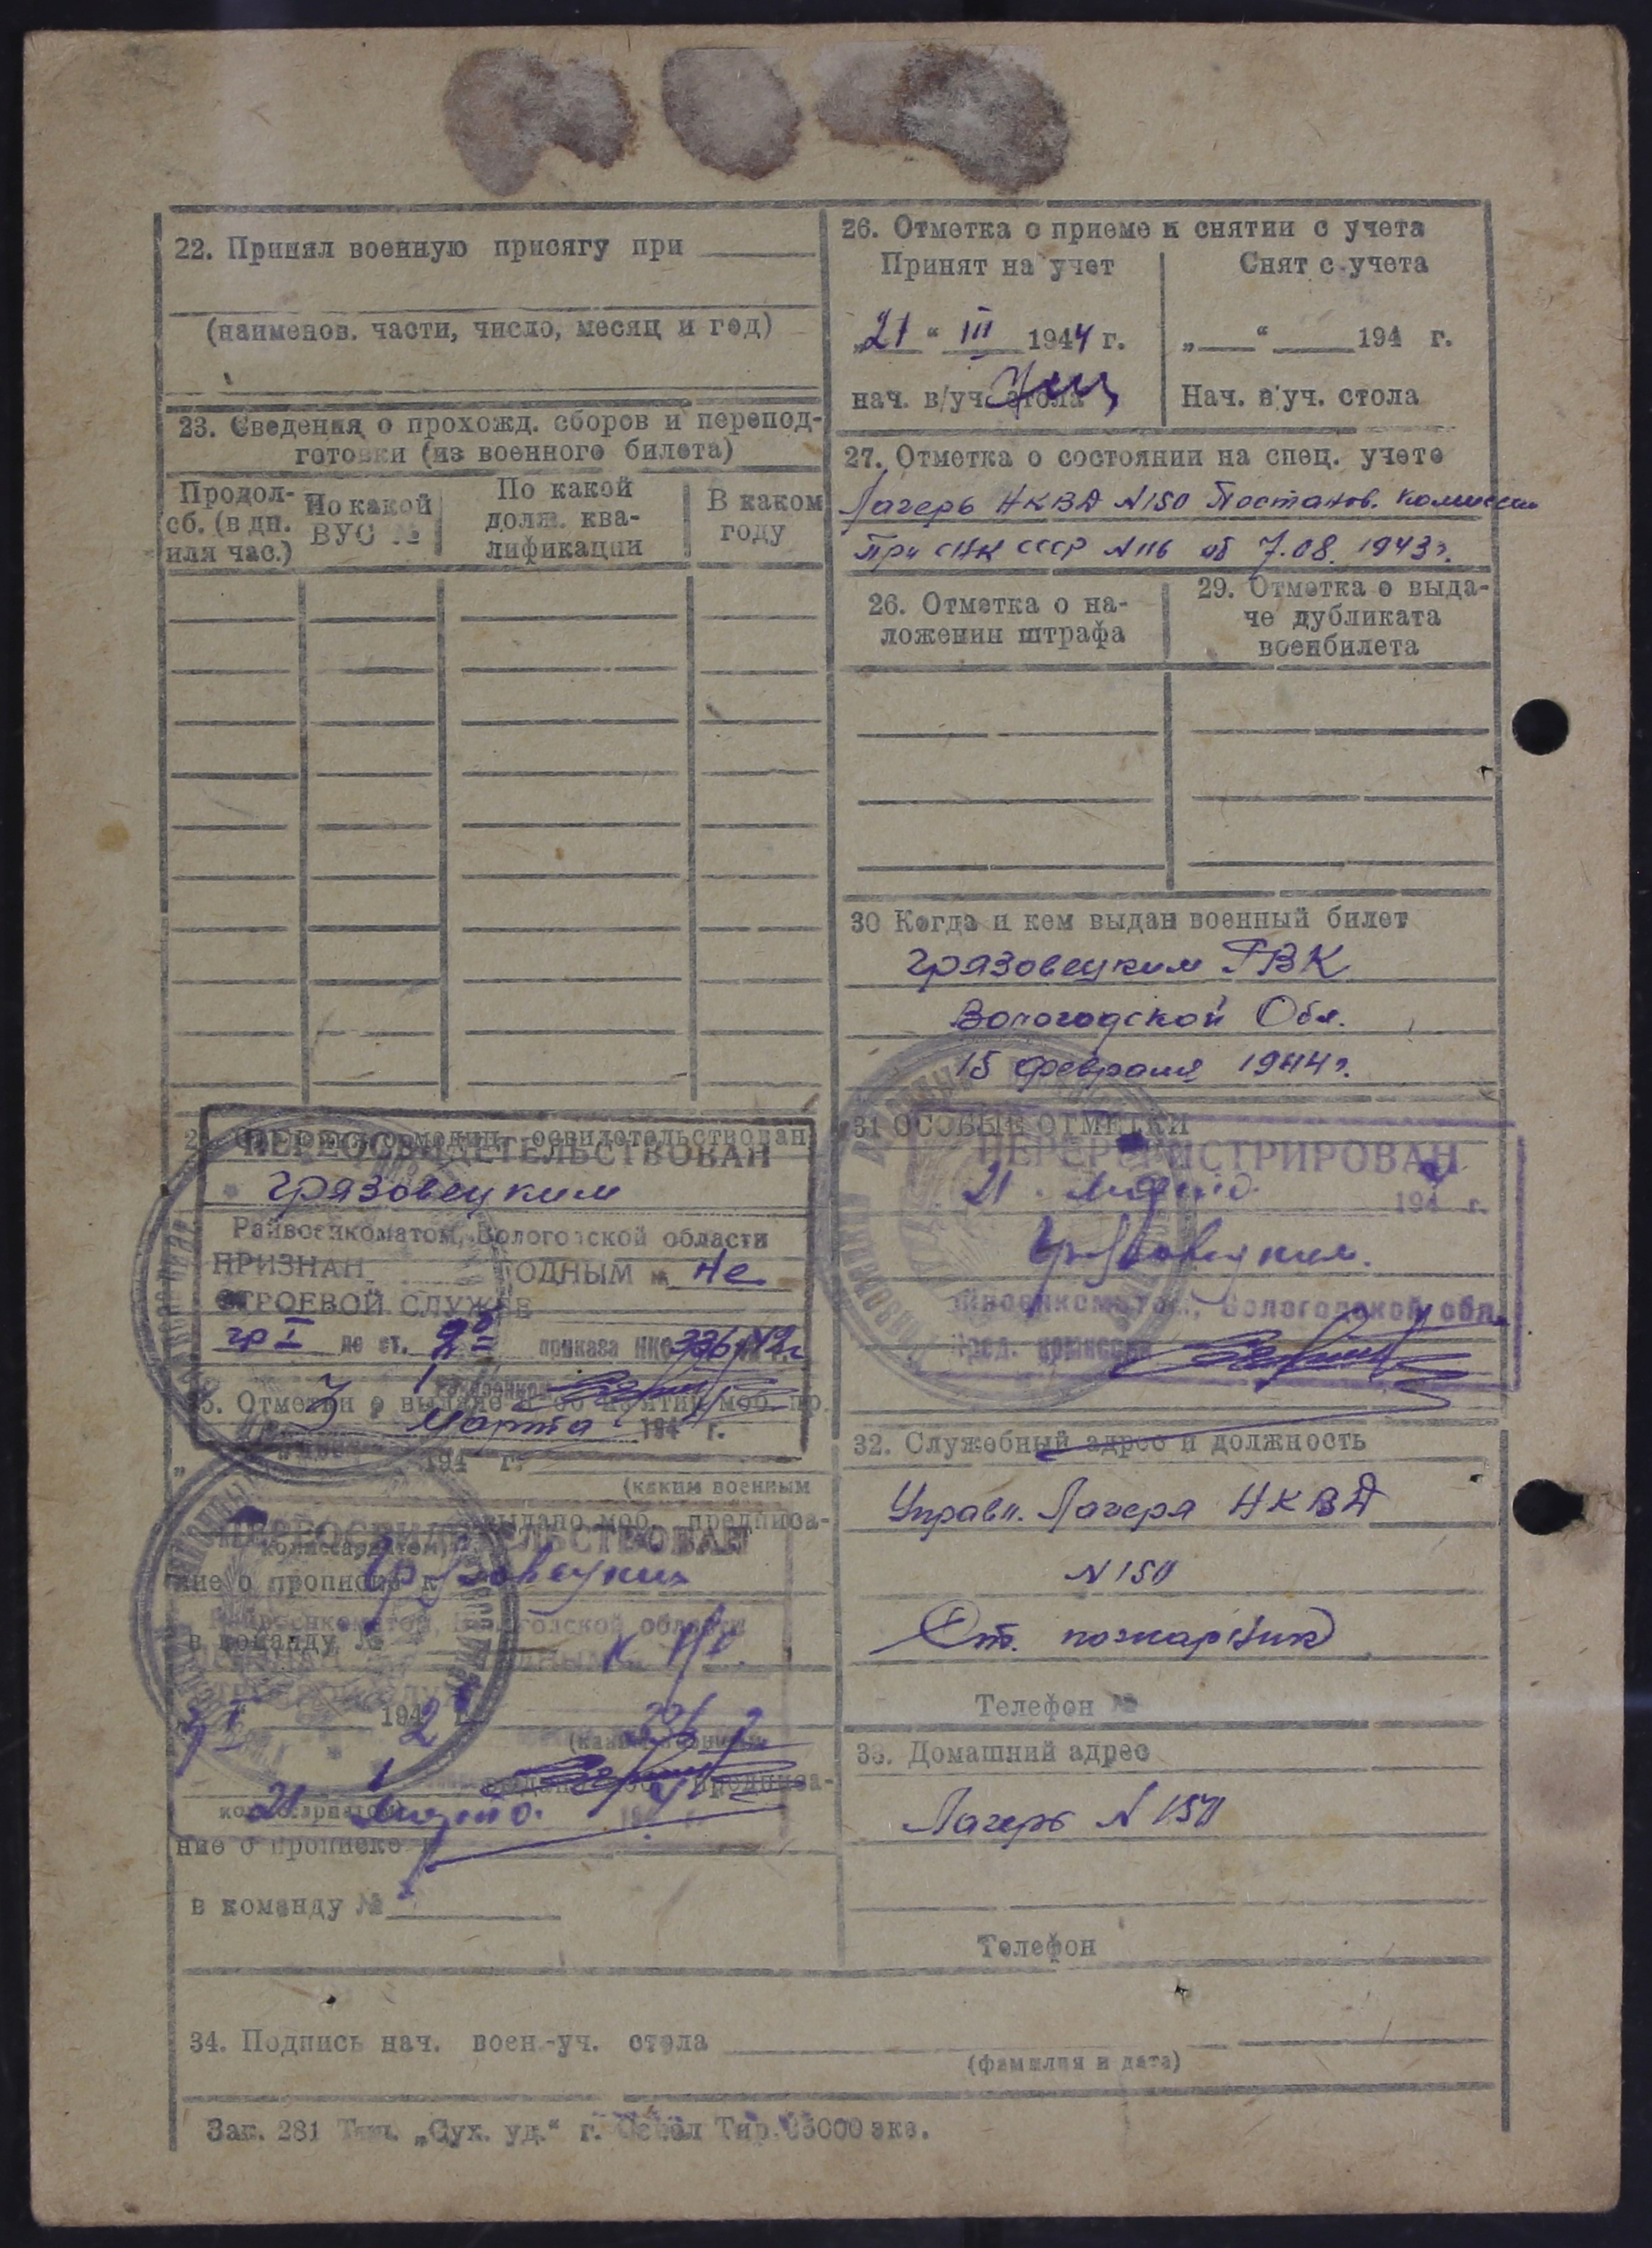 22. Принял военную присягу при
(наименов. части, число, месяц и год)
23. Сведения о прохожд. сборов и перепод-
готовки (из военного билета)
Продол-
сб. (в дн.
или час.)
По какой
ВУС №
По какой
долж. ква-
лификации
В каком
году
ПЕРЕОСВИДЕТЕЛЬСТВОВАН
Грязовецким
Райвоенкоматом, Вологодской области
ПРИЗНАН ГОДНЫМ к не
СТРОЕВОЙ СЛУЖБЕ
гр I по ст. приказа НКО 336 42г
25. Отметки о выдаче и об изятии моб. пр.
7 Марта 194 г.
„ 194 г.
(каким военным
комиссариатом)
выдано моб. предписа-
ПЕРЕОСВИДЕТЕЛЬСТВОВАН
ние о прописке к
Грязовецким
Райвоенкоматом, Вологодской области
в команду №
к не.
194 г.
336
21 Марта.
ние о прописке к
в команду №
26. Отметка о приеме и снятии с учета
Принят на учет
Снят с учета
„21“ III 1944 г.
„ “ 194 г.
нач. в/уч. стола
Нач. в/уч. стола
27. Отметка о состоянии на спец. учете
Лагерь НКВД N150 Постанов. комиссии
При СНК СССР N116 об 7.08. 1943г.
26. Отметка о на-
ложении штрафа
29. Отметка о выда-
че дубликата
военбилета
30 Когда и кем выдан военный билет
Грязовецким РВК
Вологодской Обл.
15 февраля 1944г.
31 ОСОБЫЕ ОТМЕТКИ
ПЕРЕРЕГИСТРИРОВАН
21 Марта 194 г.
Грязовецким.
Райвоенкоматом, Вологодской обл.
Пред. комиссии
32. Служебный адрес и должность
Управл. Лагеря НКВД
N 150
Ст. пожарник
Телефон №
33. Домашний адрес
Лагерь N 150
Телефон
34. Подпись нач. воен.-уч. стола
(фамилия и дата)
Заг. 281 Тип. „Сух. уд.“ г. Тир. 35000 экз.